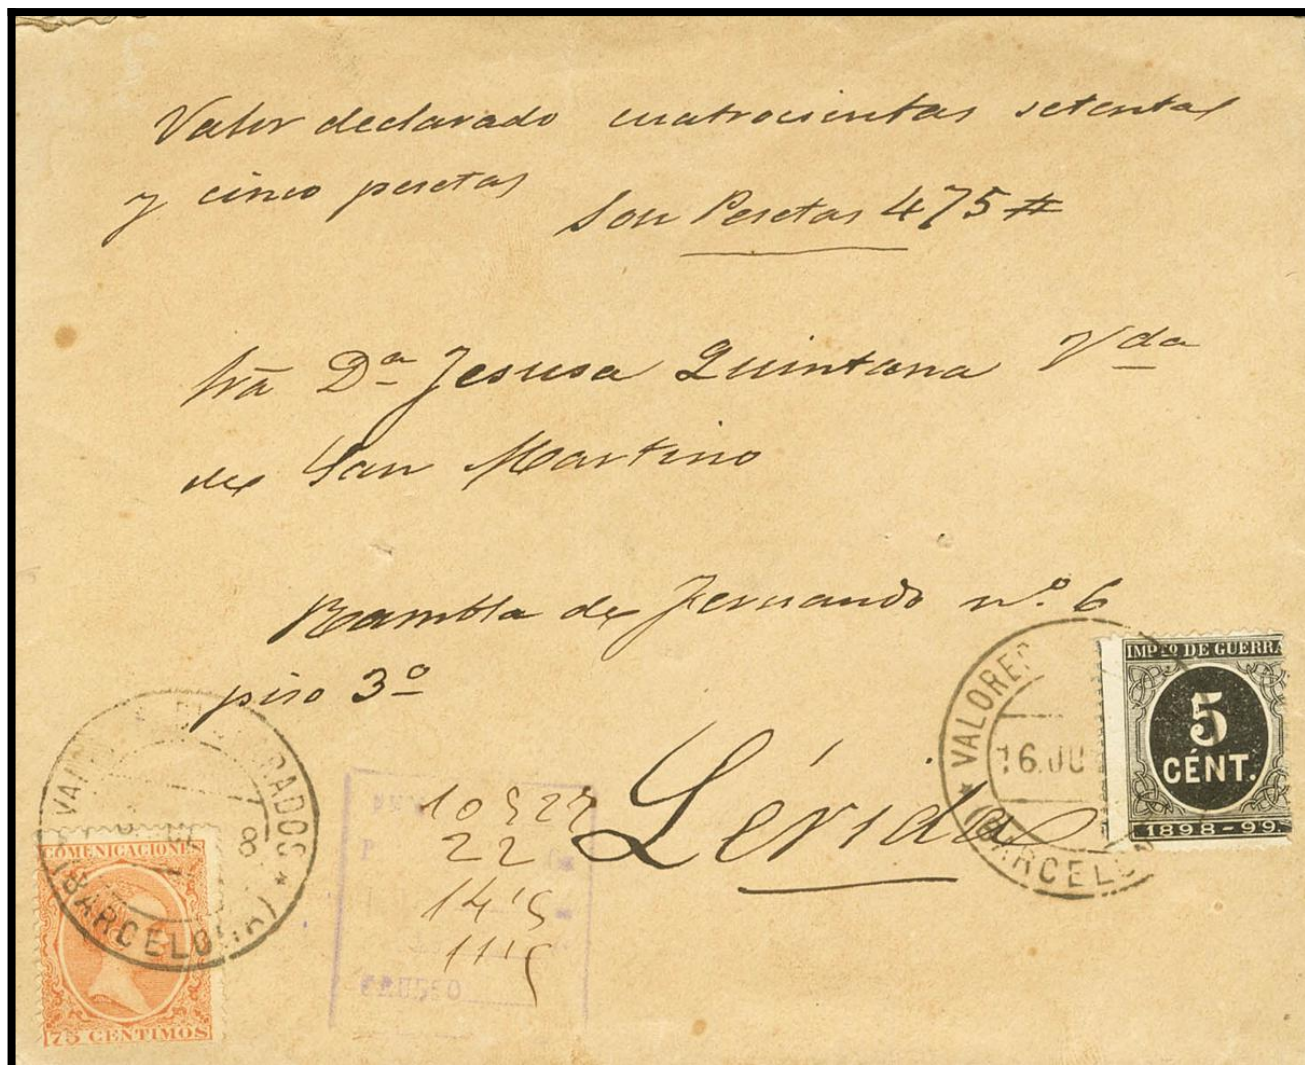 Valor declarado cuatrocientas setenta
y cinco pesetas
Son Pesetas 475 #
Sra Dª Jesusa Quintana Vda
de San Martino
Rambla de Fernando nº. 6
piso 3º
Lérida
VALORES
16.JU
(BARCELON
IMPTO DE GUERRA
5
CÉNT.
1898-99
DECLARADOS
8
(BARCELONA)
COMUNICACIONES
75 CENTIMOS
22
14'5
11'5